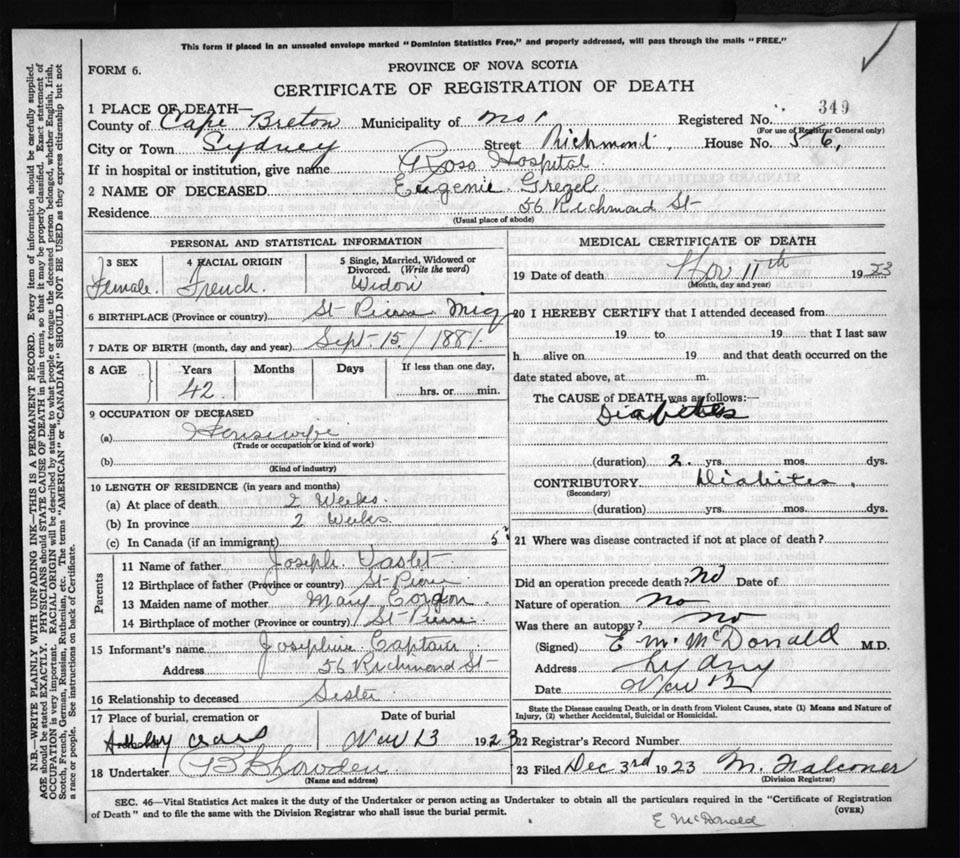 This form if placed in an unsealed envelope marked "Dominion Statistics Free," and properly addressed, will pass through the mails "FREE."
FORM 6.
PROVINCE OF NOVA SCOTIA
CERTIFICATE OF REGISTRATION OF DEATH
N.B.—WRITE PLAINLY WITH UNFADING INK—THIS IS A PERMANENT RECORD. Every item of information should be carefully supplied.
AGE should be stated EXACTLY. PHYSICIANS should STATE CAUSE OF DEATH in plain terms, so that it may be properly classified. Exact statement of
OCCUPATION is very important. RACIAL ORIGIN will be described by stating to what people or tongue the deceased person belonged, whether English, Irish,
Scotch, French, German, Russian, Ruthenian, etc. The terms "AMERICAN" or "CANADIAN" SHOULD NOT BE USED as they express citizenship but not
a race or people. See instructions on back of Certificate.
1 PLACE OF DEATH—
County of Cape Breton Municipality of No 1 Registered No. 349
(For use of Registrar General only)
City or Town Sydney Street Richmond House No. 56,
If in hospital or institution, give name Ross Hospital
2 NAME OF DECEASED Eugenie Grezel
Residence 56 Richmond St
(Usual place of abode)
PERSONAL AND STATISTICAL INFORMATION
3 SEX 4 RACIAL ORIGIN 5 Single, Married, Widowed or Divorced. (Write the word)
Female. French. Widow
6 BIRTHPLACE (Province or country) St Pierre Miq
7 DATE OF BIRTH (month, day and year) Sept-15/1881.
8 AGE Years Months Days If less than one day,
42 hrs. or min.
9 OCCUPATION OF DECEASED
(a) Housewife
(Trade or occupation or kind of work)
(b)
(Kind of industry)
10 LENGTH OF RESIDENCE (in years and months)
(a) At place of death 2 Weeks.
(b) In province 2 Weeks
(c) In Canada (if an immigrant) 5
Parents
11 Name of father Joseph
12 Birthplace of father (Province or country) St Pierre
13 Maiden name of mother Mary
14 Birthplace of mother (Province or country) St Pierre
15 Informant's name Josephine Captain
Address 56 Richmond St
16 Relationship to deceased Sister
17 Place of burial, cremation or
Holy Cross
Date of burial
Nov 13 1923
18 Undertaker
(Name and address)
MEDICAL CERTIFICATE OF DEATH
19 Date of death Nov 11th 1923
(Month, day and year)
20 I HEREBY CERTIFY that I attended deceased from
19 to 19 that I last saw
h alive on 19 and that death occurred on the
date stated above, at m.
The CAUSE of DEATH was as follows:—
Diabetes
(duration) 2. yrs. mos. dys.
CONTRIBUTORY Diabites.
(Secondary)
(duration) yrs. mos. dys.
21 Where was disease contracted if not at place of death?
Did an operation precede death? No Date of
Nature of operation no
Was there an autopsy? no
(Signed) E M. McDonald M.D.
Address Sydney
Date Nov 12
State the Disease causing Death, or in death from Violent Causes, state (1) Means and Nature of
Injury, (2) whether Accidental, Suicidal or Homicidal.
22 Registrar's Record Number
23 Filed Dec 3rd 1923 M. Falconer
(Division Registrar)
SEC. 46—Vital Statistics Act makes it the duty of the Undertaker or person acting as Undertaker to obtain all the particulars required in the "Certificate of Registration
of Death" and to file the same with the Division Registrar who shall issue the burial permit. (OVER)
E McDonald